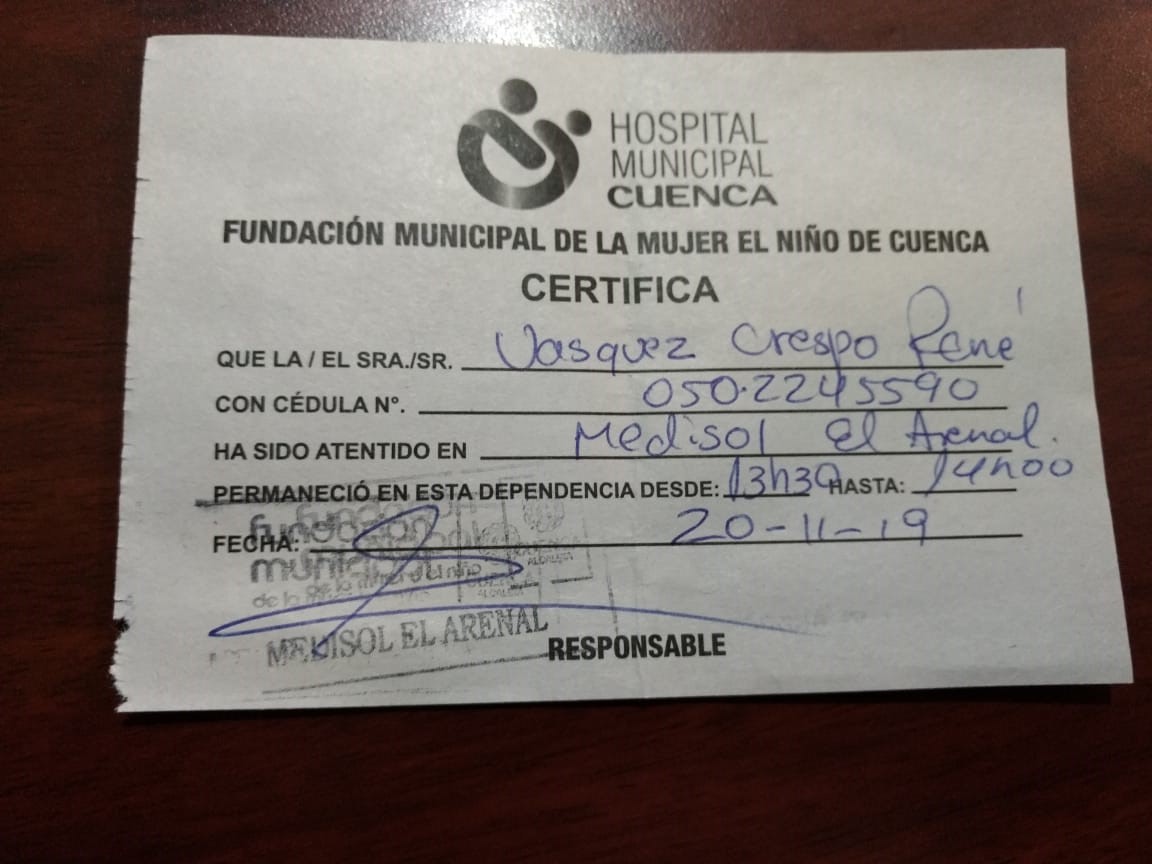 HOSPITAL
MUNICIPAL
CUENCA
FUNDACIÓN MUNICIPAL DE LA MUJER EL NIÑO DE CUENCA
CERTIFICA
QUE LA / EL SRA./SR. Vasquez Crespo René
CON CÉDULA Nº. 050·2245590
HA SIDO ATENTIDO EN Medisol El Arenal.
PERMANECIÓ EN ESTA DEPENDENCIA DESDE: 13h30 HASTA: 14h00
FECHA: 20-11-19
fundación
municipal
MEDISOL EL ARENAL
RESPONSABLE